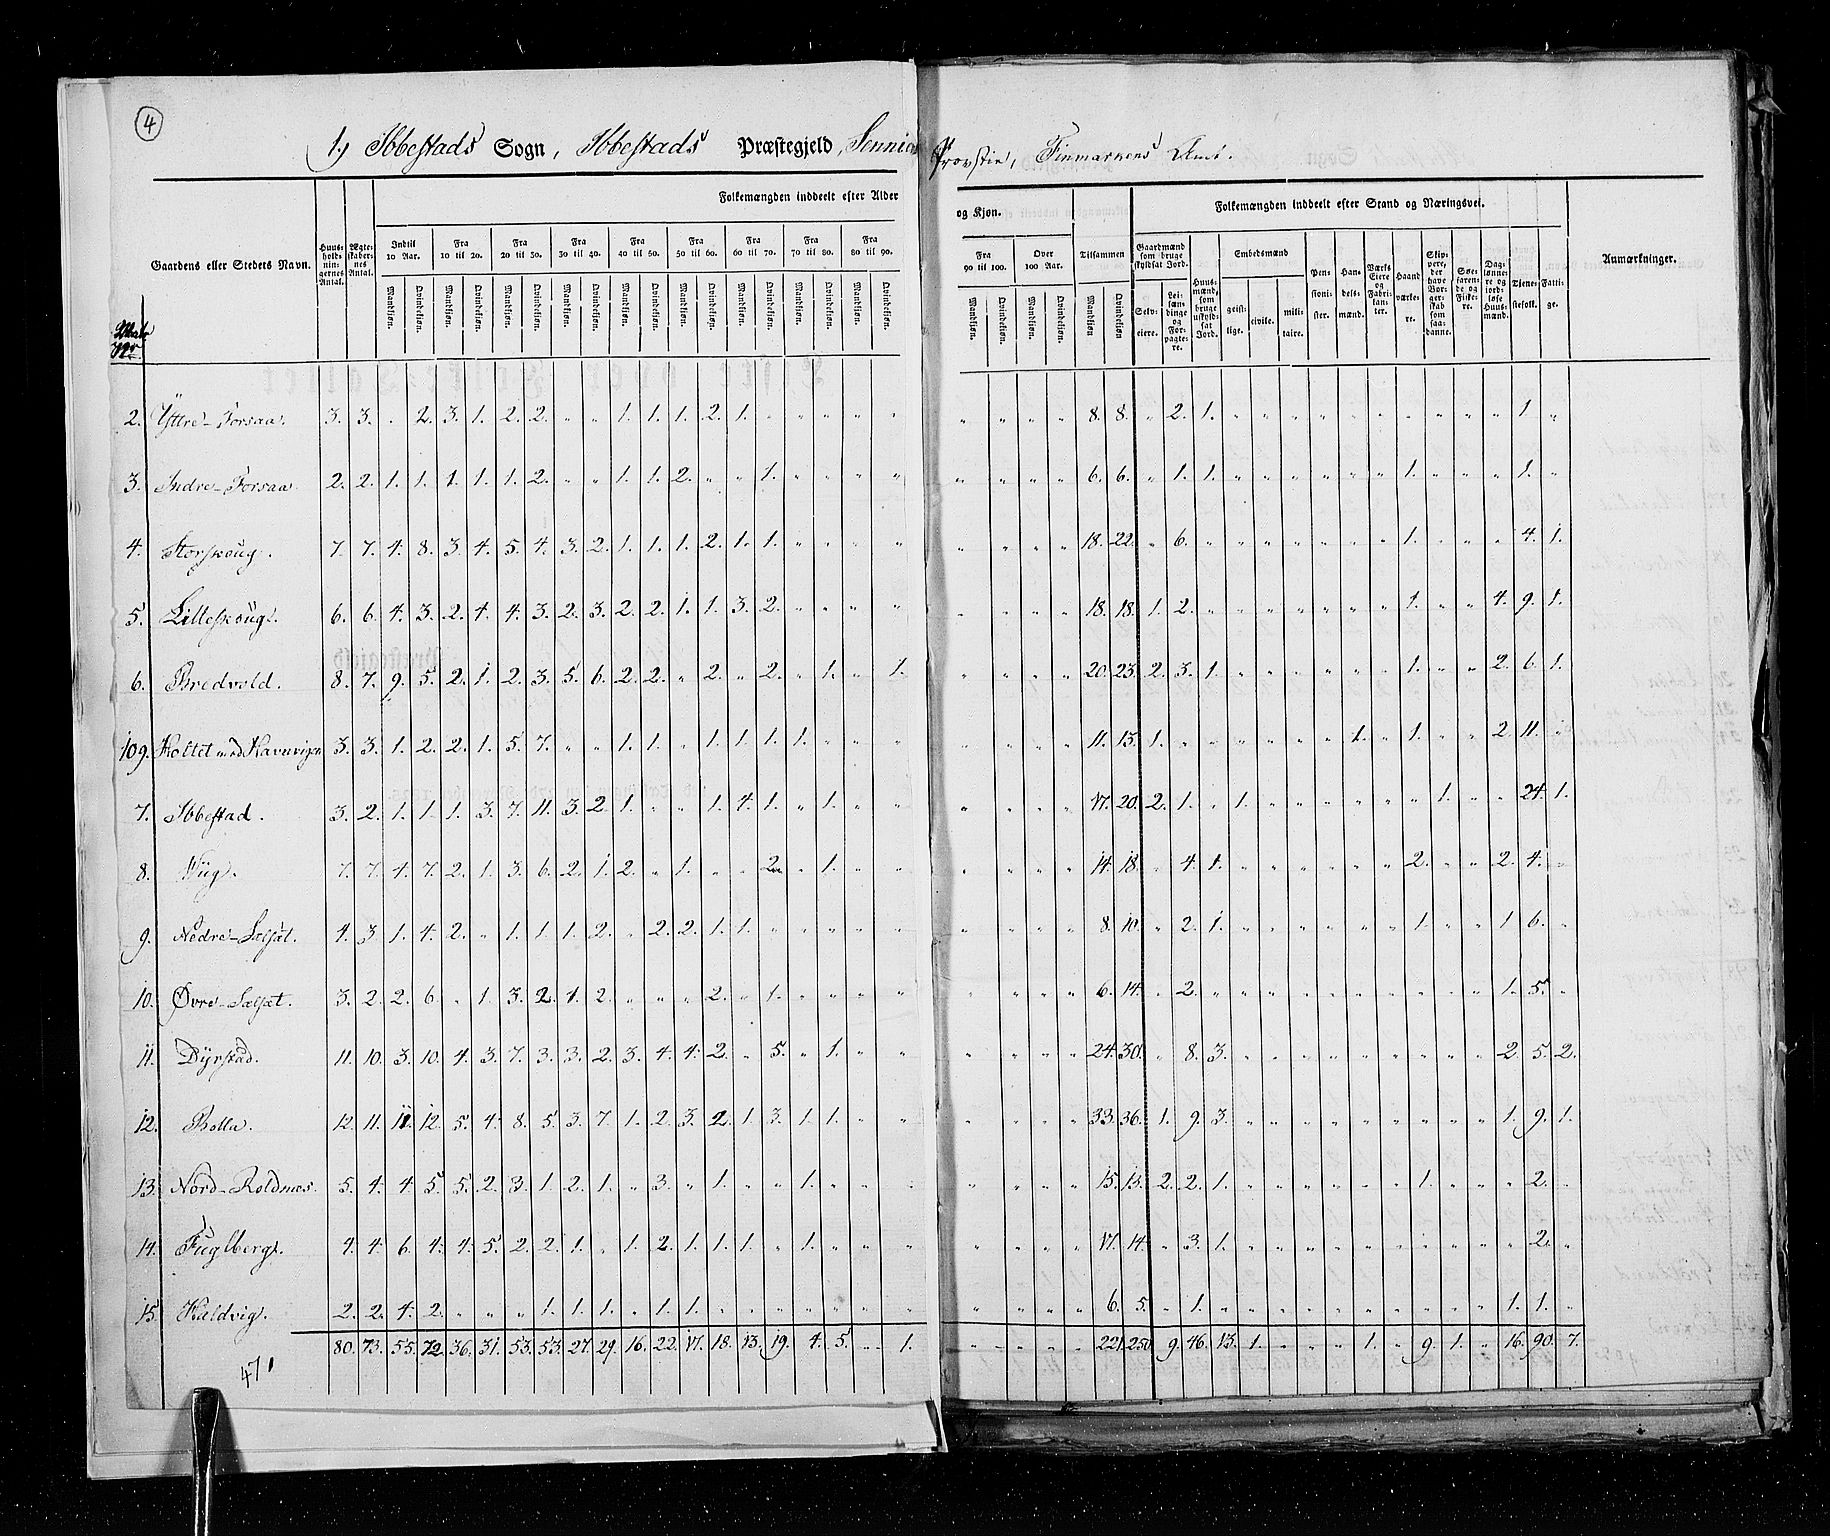 4
1, Ibbestads Sogn, Ibbestads Præstegjeld, Senniens Provstie, Finmarkens Amt.
Folkemængden inddeelt efter Alder og Kjøn. Folkemængden inddeelt efter Stand og Næringsvei.
Matr. No. Gaardens eller Stedets Navn. Huusholdningernes Antal. Ægteskabernes Antal. Indtil 10 Aar. Fra 10 til 20. Fra 20 til 30. Fra 30 til 40. Fra 40 til 50. Fra 50 til 60. Fra 60 til 70. Fra 70 til 80. Fra 80 til 90. Fra 90 til 100. Over 100 Aar. Tilsammen Gaardmænd som bruge skyldsat Jord. Huusmænd, som bruge uskyldsat Jord. Embedsmænd Pensionister. Handelsmænd. Værks Eiere og Fabrikanter. Haandværkere. Skippere, der have Borgerskab som saadanne. Søefarende og Fiskere. Daglønnere og jordløse Huusmænd. Tjenestefolk. Fattige. Anmærkninger.
Mandkiøn. Qvindekiøn. Mandkiøn. Qvindekiøn. Mandkiøn. Qvindekiøn. Mandkiøn. Qvindekiøn. Mandkiøn. Qvindekiøn. Mandkiøn. Qvindekiøn. Mandkiøn. Qvindekiøn. Mandkiøn. Qvindekiøn. Mandkiøn. Qvindekiøn. Mandkiøn. Qvindekiøn. Mandkiøn. Qvindekiøn. Mandkiøn Qvindekiøn Selveiere. Leilændinge og Forpagtere. geistlige. civile. militaire.
2. Yttre-Forsaa. 3. 3. „ 2. 3. 1. 2. 2. „ „ 1. 1. 1. 2. 1. „ „ „ „ „ „ „ „ „ 8. 8. „ 2. 1. „ „ „ „ „ „ „ „ „ „ 1. „
3. Indre-Forsaa. 2. 2. 1. 1. 1. 1. 1. 2. „ „ 1. 1. 2. „ „ 1. „ „ „ „ „ „ „ „ 6. 6. „ 1. 1. „ „ „ „ „ „ 1. „ „ „ 1. „
4. Storskoug. 7. 7. 4. 8. 3. 4. 5. 4. 3. 2. 1. 1. 1. 2. 1. 1. „ „ „ „ „ „ „ „ 18. 22. „ 6. „ „ „ „ „ „ „ 1. „ „ „ 4. 1.
5. Lilleskoug. 6. 6. 4. 3. 2. 4. 4. 3. 2. 3. 2. 2. 1. 1. 3. 2. „ „ „ „ „ „ „ „ 18. 18. 1. 2. „ „ „ „ „ „ „ 1. „ „ 4. 9. 1.
6. Bredvold. 8. 7. 9. 5. 2. 1. 2. 3. 5. 6. 2. 2. „ 2. „ 2. „ 1. „ 1. „ „ „ „ 20. 23. 2. 3. 1. „ „ „ „ „ „ 1. „ „ 2. 6. 1.
109. Holtet med Havnvigen 3. 3. 1. 2. 2. 1. 5. 7. „ „ 1. 1. „ 1. 1. 1. 1. „ „ „ „ „ „ „ 11. 13. 1. „ „ „ „ „ „ 1. „ 1. „ „ 2. 11. „
7. Ibbestad. 3. 2. 1. 1. 1. 3. 7. 11. 3. 2. 1. „ „ 1. 4. 1. „ 1. „ „ „ „ „ „ 17. 20. 2. 1. „ 1. „ „ „ „ „ „ 1. „ „ 24. 1.
8. Wiig. 7. 7. 4. 7. 2. 1. 3. 6. 2. 1. 2. „ 1. „ „ 2. „ 1. „ „ „ „ „ „ 14. 18. „ 4. 1. „ „ „ „ „ „ 2. „ „ 2. 4. „
9. Nedre-Sælsæt. 4. 3. 1. 4. 2. „ 1. 1. 1. 2. „ 2. 2. 1. 1. „ „ „ „ „ „ „ „ „ 8. 10. „ 2. 1. „ „ „ „ „ „ 1. „ „ 1. 6. „
10. Øvre-Sælsæt. 3. 2. 2. 6. „ 1. 3. 2. 1. 2. „ „ „ 2. „ 1. „ „ „ „ „ „ „ „ 6. 14. „ 2. „ „ „ „ „ „ „ „ „ „ 1. 5. „
11. Dyrstad. 11. 10. 3. 10. 4. 3. 7. 3. 3. 2. 3. 4. 4. 2. „ 5. „ 1. „ „ „ „ „ „ 24. 30. „ 8. 3. „ „ „ „ „ „ „ „ „ 2. 5. 2.
12. Bolla. 12. 11. 11. 12. 5. 4. 8. 5. 3. 7. 1. 2. 3. 2. 1. 3. 1. 1. „ „ „ „ „ „ 33. 36. 1. 9. 3. „ „ „ „ „ „ „ „ „ 1. 9. 1.
13. Nord-Roldnes. 5. 4. 4. 5. 5. 2. 3. 1. 2. 1. „ 3. „ 1. „ „ 1. „ „ „ „ „ „ „ 15. 13. 2. 2. 1. „ „ „ „ „ „ 1. „ „ „ 2. „
14. Fuglberg. 4. 4. 6. 4. 4. 5. 2. 2. 1. „ 1. 2. 1. 1. 1. „ 1. „ „ „ „ „ „ „ 17. 14. „ 3. 1. „ „ „ „ „ „ „ „ „ „ 2. „
15. Kaldvig. 2. 2. 4. 2. „ „ „ 1. 1. 1. „ 1. 1. „ „ „ „ „ „ „ „ „ „ „ 6. 5. „ 1. „ „ „ „ „ „ „ „ „ „ 1. 1. „
80. 73. 55. 72. 36. 31. 53. 53. 27. 29. 16. 22. 17. 18. 13. 19. 4. 5. „ 1. „ „ „ „ 221. 250. 9. 46. 13. 1. „ „ „ 1. „ 9. 1. „ 16. 90. 7.
471